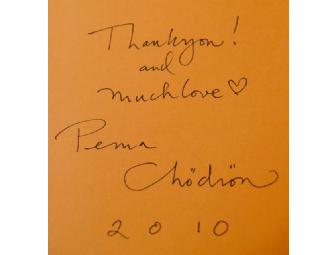 Thankyou!
and
much love ♡
Pema
Chödrön
2010